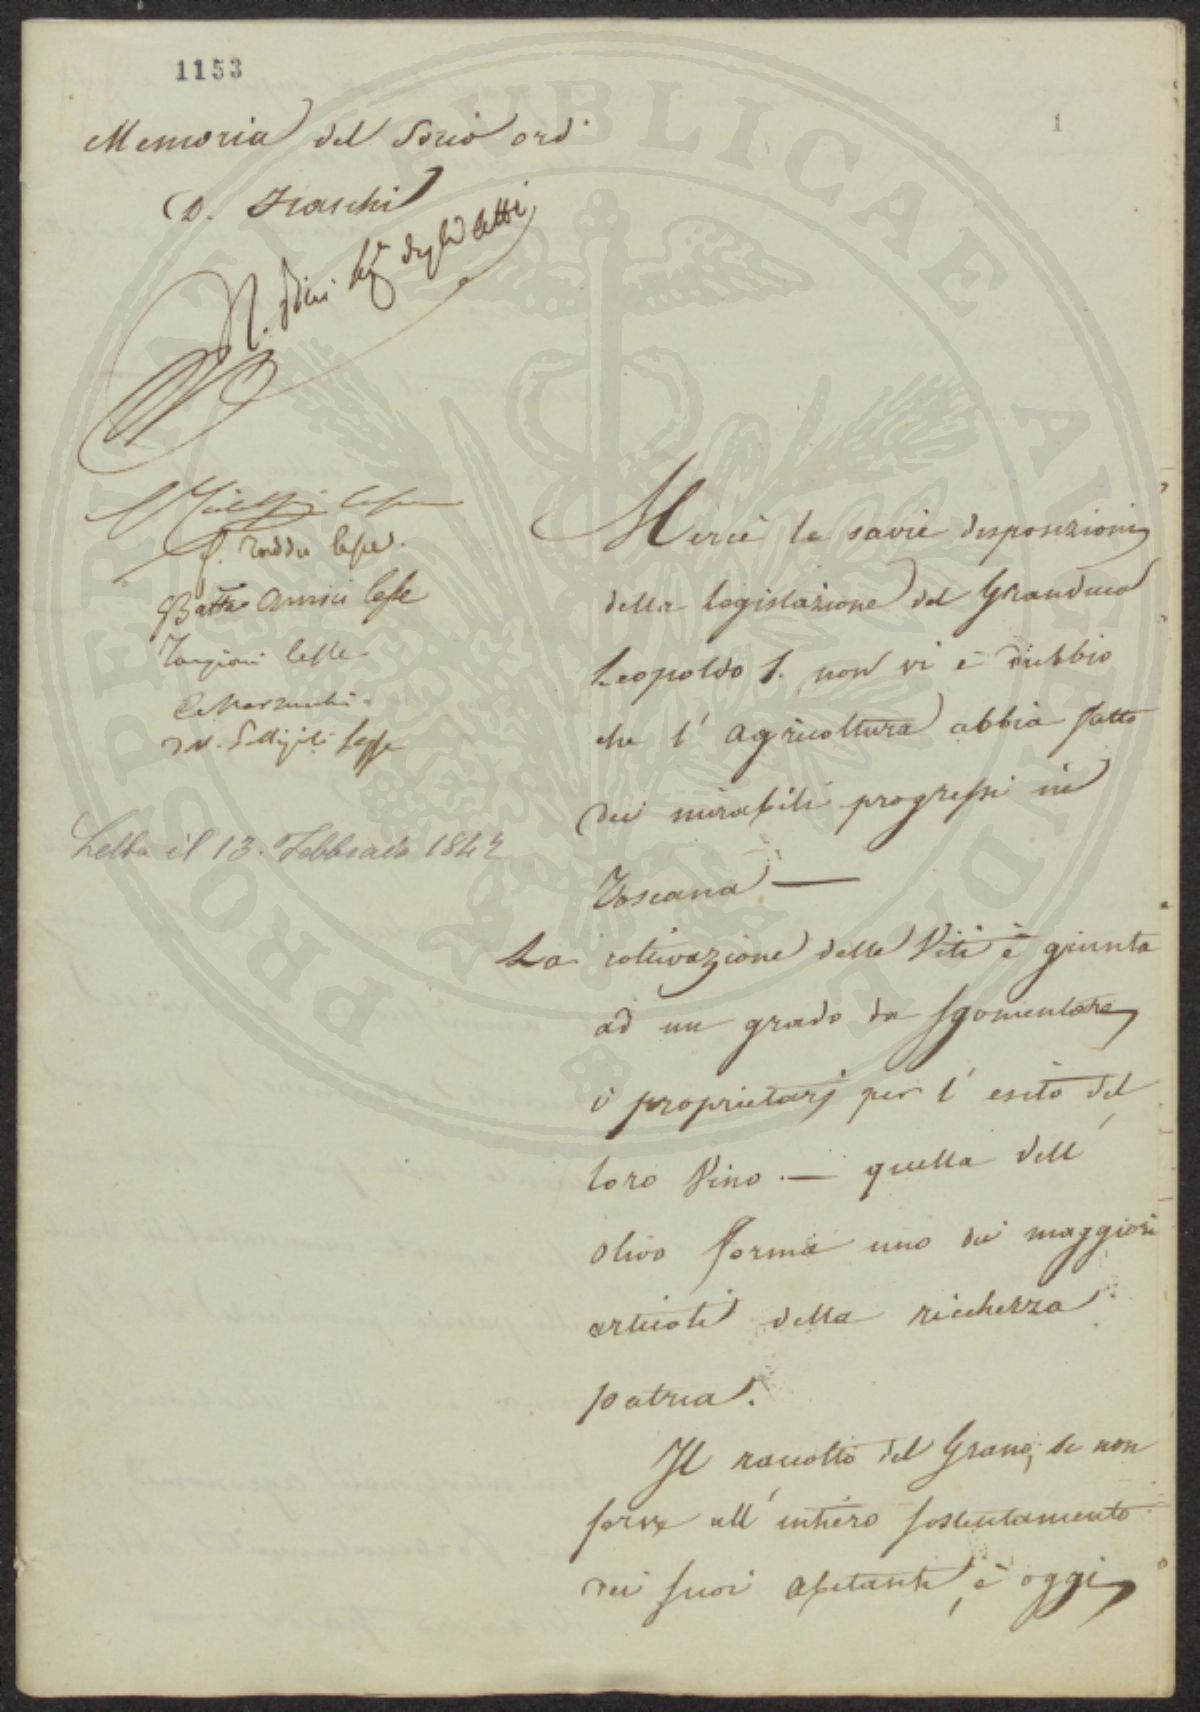 1153
1
Memoria del Socio ord.
D. Fraschi
degli Atti
Batta Amici
Letta il 13. Febbraio 1842
Mercè le savie disposizioni
della legislazione del Granduca
Leopoldo I. non vi è dubbio
che l' agricoltura abbia fatto
dei mirabili progressi in
Toscana —
La coltivazione delle Viti è giunta
ad un grado da sgomentare
i proprietarj per l' esito del
loro Vino. — quella dell'
olivo forma uno dei maggiori
articoli della ricchezza
patria.
Il raccolto del Grano, se non
serve all' intiero sostentamento
dei suoi abitanti, è oggi
PROSPERITATI PUBLICAE AUGENDAE